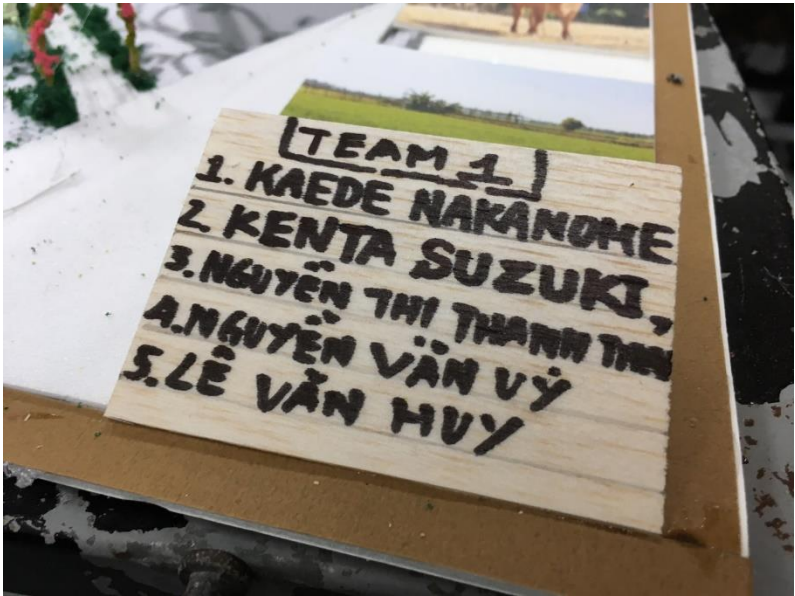 TEAM 1
1. KAEDE NAKANOME
2. KENTA SUZUKI,
3. NGUYỄN THI THANH
4. NGUYỄN VĂN VỸ
5. LÊ VĂN HUY